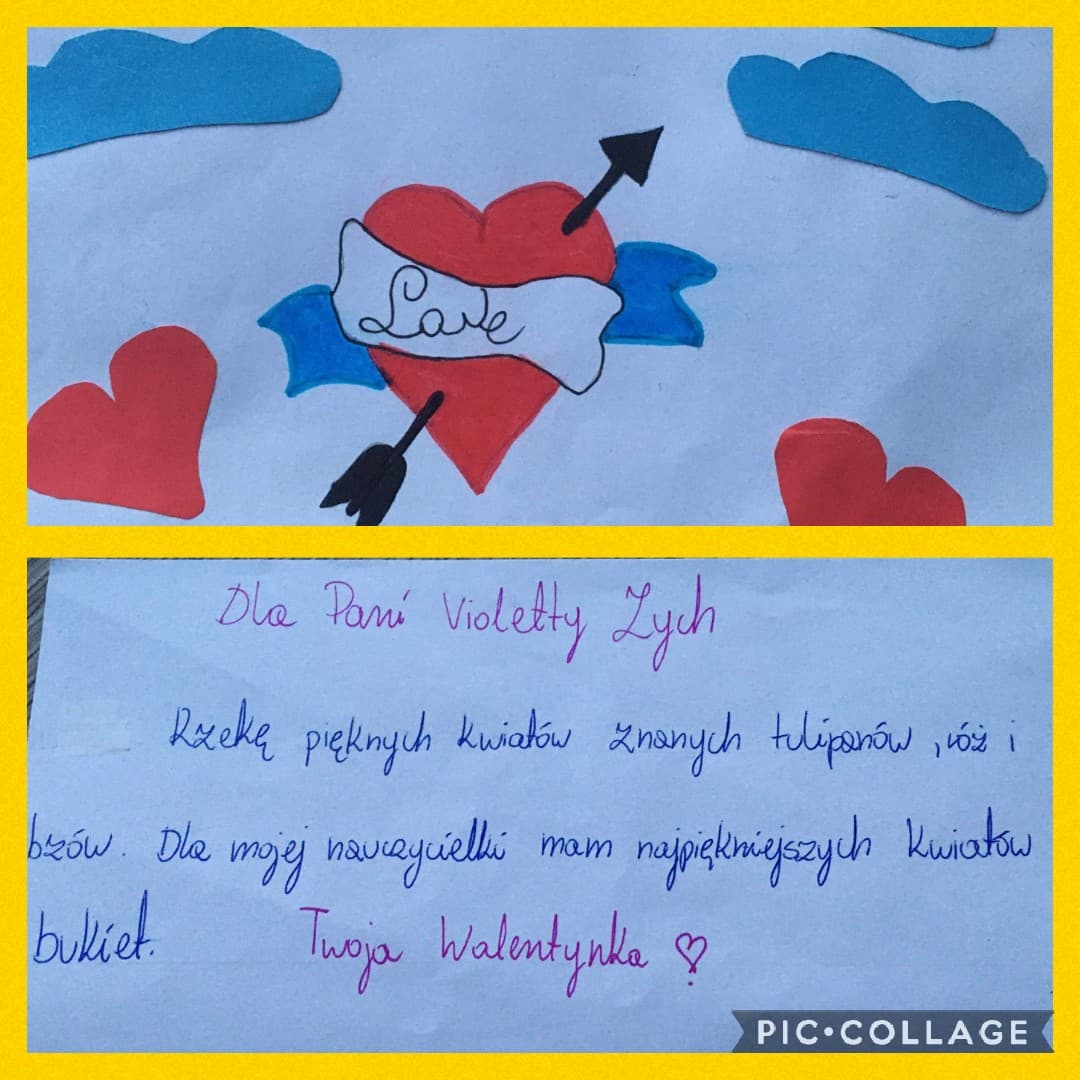 Love
Dla Pani Violetty Zych
Rzekę pięknych kwiatów znanych tulipanów, róż i
bzów. Dla mojej nauczycielki mam najpiękniejszych kwiatów
bukiet. Twoja Walentynka ♡
PIC•COLLAGE